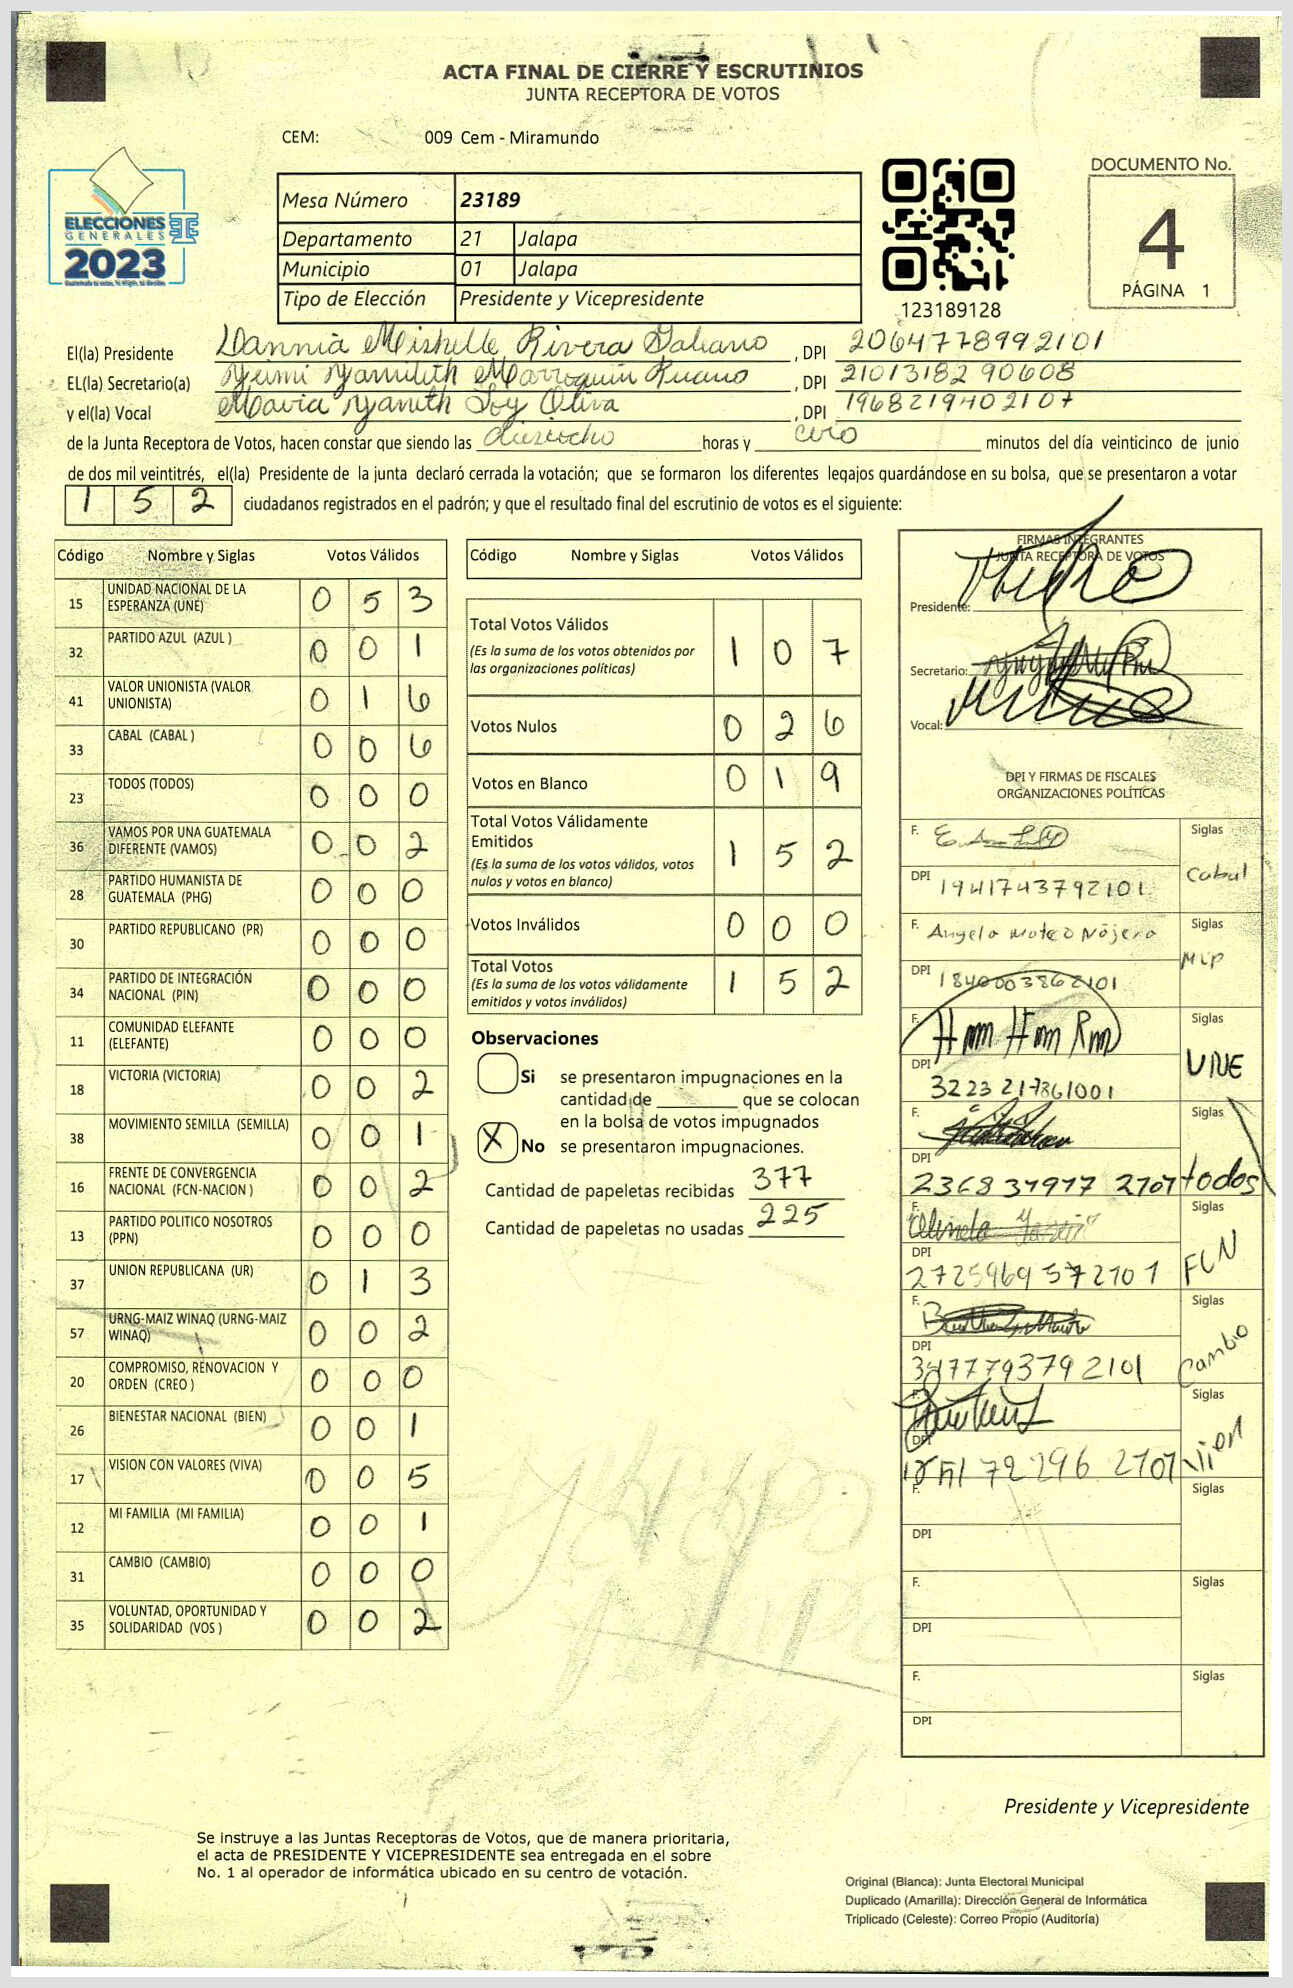 ACTA FINAL DE CIERRE Y ESCRUTINIOS
JUNTA RECEPTORA DE VOTOS
CEM: 009 Cem - Miramundo
DOCUMENTO No.
4
PÁGINA 1
ELECCIONES
GENERALES
2023
Mesa Número 23189
Departamento 21 Jalapa
Municipio 01 Jalapa
Tipo de Elección Presidente y Vicepresidente
123189128
El(la) Presidente Dannia Mishelle Rivera Galeano , DPI 2064778992101
EL(la) Secretario(a) Yeimi Yamilith Marroquin Ruano , DPI 2101318290608
y el(la) Vocal Maria Yaneth Loy Oliva , DPI 1968219402107
de la Junta Receptora de Votos, hacen constar que siendo las dieciocho horas y cero minutos del día veinticinco de junio
de dos mil veintitrés, el(la) Presidente de la junta declaró cerrada la votación; que se formaron los diferentes legajos quardándose en su bolsa, que se presentaron a votar
1 5 2 ciudadanos registrados en el padrón; y que el resultado final del escrutinio de votos es el siguiente:
Código Nombre y Siglas Votos Válidos
15 UNIDAD NACIONAL DE LA ESPERANZA (UNE) 0 5 3
32 PARTIDO AZUL (AZUL ) 0 0 1
41 VALOR UNIONISTA (VALOR UNIONISTA) 0 1 6
33 CABAL (CABAL ) 0 0 6
23 TODOS (TODOS) 0 0 0
36 VAMOS POR UNA GUATEMALA DIFERENTE (VAMOS) 0 0 2
28 PARTIDO HUMANISTA DE GUATEMALA (PHG) 0 0 0
30 PARTIDO REPUBLICANO (PR) 0 0 0
34 PARTIDO DE INTEGRACIÓN NACIONAL (PIN) 0 0 0
11 COMUNIDAD ELEFANTE (ELEFANTE) 0 0 0
18 VICTORIA (VICTORIA) 0 0 2
38 MOVIMIENTO SEMILLA (SEMILLA) 0 0 1
16 FRENTE DE CONVERGENCIA NACIONAL (FCN-NACION ) 0 0 2
13 PARTIDO POLITICO NOSOTROS (PPN) 0 0 0
37 UNION REPUBLICANA (UR) 0 1 3
57 URNG-MAIZ WINAQ (URNG-MAIZ WINAQ) 0 0 2
20 COMPROMISO, RENOVACION Y ORDEN (CREO ) 0 0 0
26 BIENESTAR NACIONAL (BIEN) 0 0 1
17 VISION CON VALORES (VIVA) 0 0 5
12 MI FAMILIA (MI FAMILIA) 0 0 1
31 CAMBIO (CAMBIO) 0 0 0
35 VOLUNTAD, OPORTUNIDAD Y SOLIDARIDAD (VOS ) 0 0 2
Código Nombre y Siglas Votos Válidos
Total Votos Válidos 1 0 7
(Es la suma de los votos obtenidos por
las organizaciones políticas)
Votos Nulos 0 2 6
Votos en Blanco 0 1 9
Total Votos Válidamente
Emitidos 1 5 2
(Es la suma de los votos válidos, votos
nulos y votos en blanco)
Votos Inválidos 0 0 0
Total Votos 1 5 2
(Es la suma de los votos válidamente
emitidos y votos inválidos)
Observaciones
Si se presentaron impugnaciones en la
cantidad de ________ que se colocan
en la bolsa de votos impugnados
X No se presentaron impugnaciones.
Cantidad de papeletas recibidas 377
Cantidad de papeletas no usadas 225
FIRMAS INTEGRANTES
JUNTA RECEPTORA DE VOTOS
Presidente:
Secretario:
Vocal:
DPI Y FIRMAS DE FISCALES
ORGANIZACIONES POLÍTICAS
F. Siglas
DPI 1941743792101 Cabal
F. Angela Mateo Nájera Siglas
DPI 1840003862101 MLP
F. Hm Hm Rm Siglas
DPI 3223217861001 UNE
F. Siglas
DPI 2368 37977 2101 todos
F. Siglas
DPI 2725969572101 FCN
F. Siglas
DPI 3477793792101 Cambio
F. Siglas
DPI
F. Siglas
DPI
F. Siglas
DPI
F. Siglas
DPI
Presidente y Vicepresidente
Se instruye a las Juntas Receptoras de Votos, que de manera prioritaria,
el acta de PRESIDENTE Y VICEPRESIDENTE sea entregada en el sobre
No. 1 al operador de informática ubicado en su centro de votación.
Original (Blanca): Junta Electoral Municipal
Duplicado (Amarilla): Dirección General de Informática
Triplicado (Celeste): Correo Propio (Auditoría)